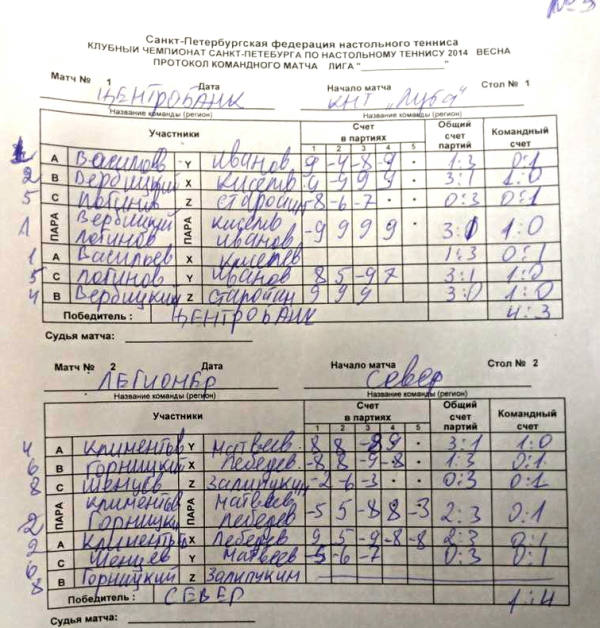 №3
Санкт-Петербургская федерация настольного тенниса
КЛУБНЫЙ ЧЕМПИОНАТ САНКТ-ПЕТЕБУРГА ПО НАСТОЛЬНОМУ ТЕННИСУ 2014 ВЕСНА
ПРОТОКОЛ КОМАНДНОГО МАТЧА ЛИГА "______________"
Матч № 1 Дата Начало матча Стол № 1
ЦЕНТРОБАНК КНТ „Луба"
Название команды (регион) Название команды (регион)
Участники Счет в партиях Общий счет партий Командный счет
1 2 3 4 5
A Васильев Y Иванов 9 -4 -8 -9 · 1:3 0:1
2 B Вербицкий X Киселев 9 -9 9 9 · 3:1 1:0
5 C Логинов Z Старостин -8 -6 -7 · · 0:3 0:1
1 ПАРА Вербицкий Логинов ПАРА Киселев Иванов -9 9 9 9 · 3:1 1:0
1 A Васильев X Киселев 1:3 0:1
5 C Логинов Y Иванов 8 5 -9 7 3:1 1:0
4 B Вербицкий Z Старостин 9 9 9 3:0 1:0
Победитель : ЦЕНТРОБАНК 4:3
Судья матча:
Матч № 2 Дата Начало матча Стол № 2
ЛЕГИОНЕР Север
Название команды (регион) Название команды (регион)
Участники Счет в партиях Общий счет партий Командный счет
1 2 3 4 5
4 A Климентов Y Матвеев 8 8 -8 9 · 3:1 1:0
6 B Горницкий X Лебедев -8 8 -9 -8 · 1:3 0:1
8 C Шенцев Z Залипукин -2 -6 -3 · · 0:3 0:1
2 ПАРА Климентов Горницкий ПАРА Матвеев Лебедев -5 5 -8 8 -3 2:3 0:1
2 A Климентов X Лебедев 9 5 -9 -8 -8 2:3 0:1
6 C Шенцев Y Матвеев -5 -6 -7 0:3 0:1
8 B Горницкий Z Залипукин
Победитель : СЕВЕР 1:4
Судья матча: